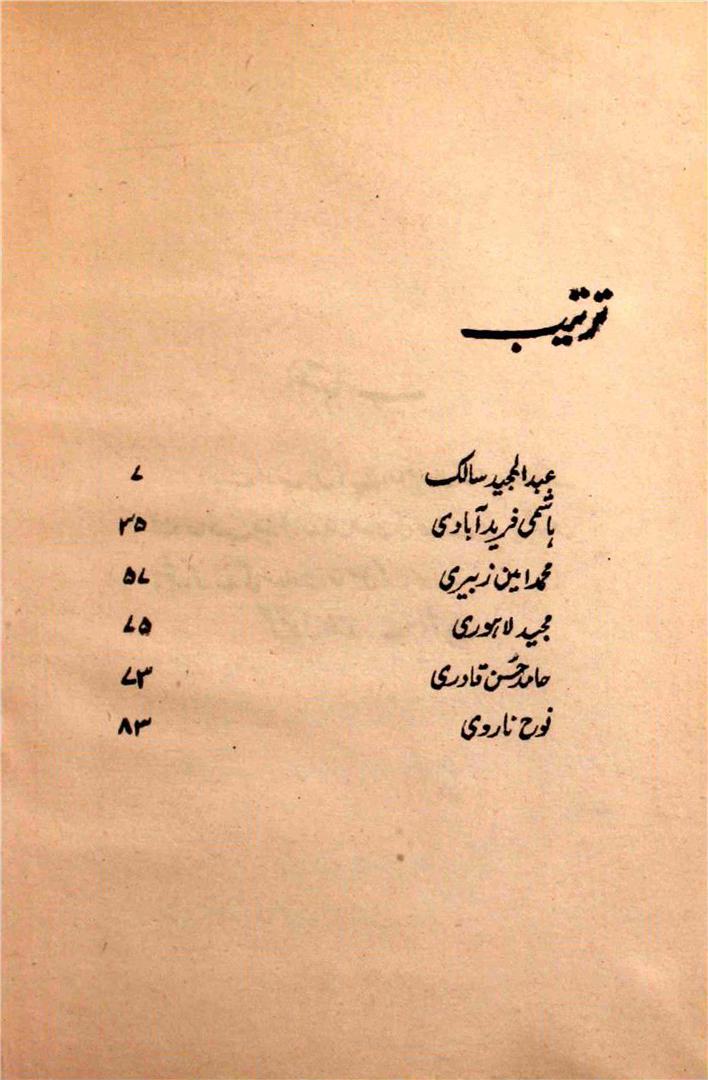 ترتیب
عبدالمجید سالک ۷
ہاشمی فریدآبادی ۳۵
محمد امین زبیری ۵۷
مجید لاہوری ۷۵
حامد حسن قادری ۷۳
نوح ناروی ۸۳